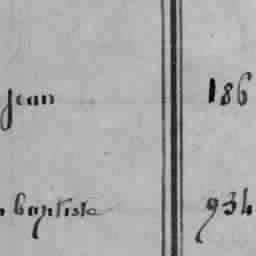 Jean 186
baptiste 934